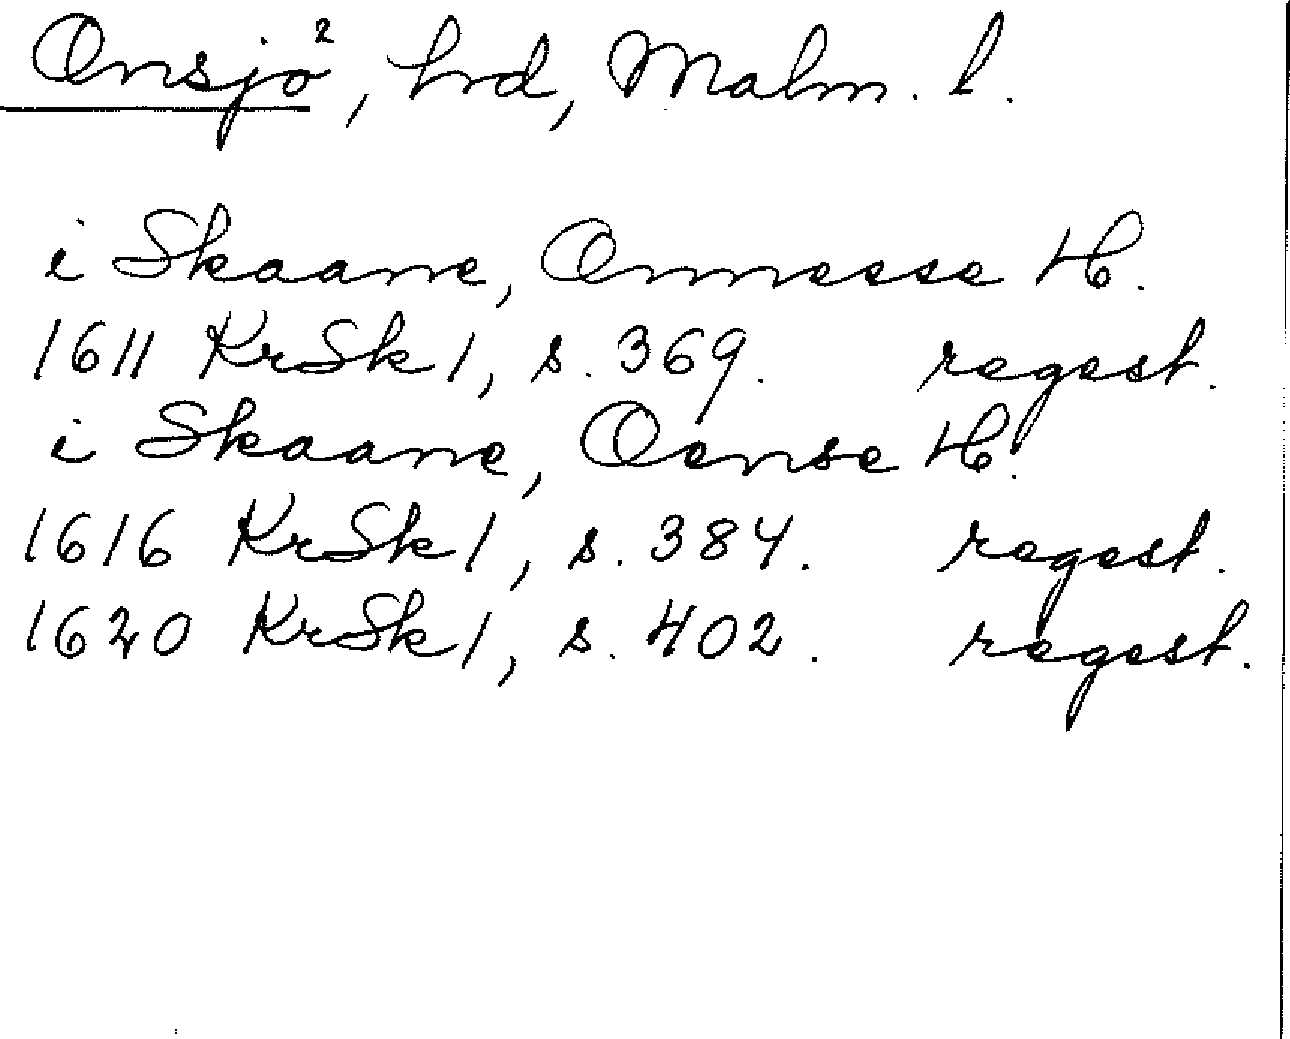 Onsjö², hrd, Malm. l.
i Skaane, Onnesse H.
1611 KrSk 1, s. 369. regest.
i Skaane, Oense H.
1616 KrSk 1, s. 384. regest.
1620 KrSk 1, s. 402. regest.